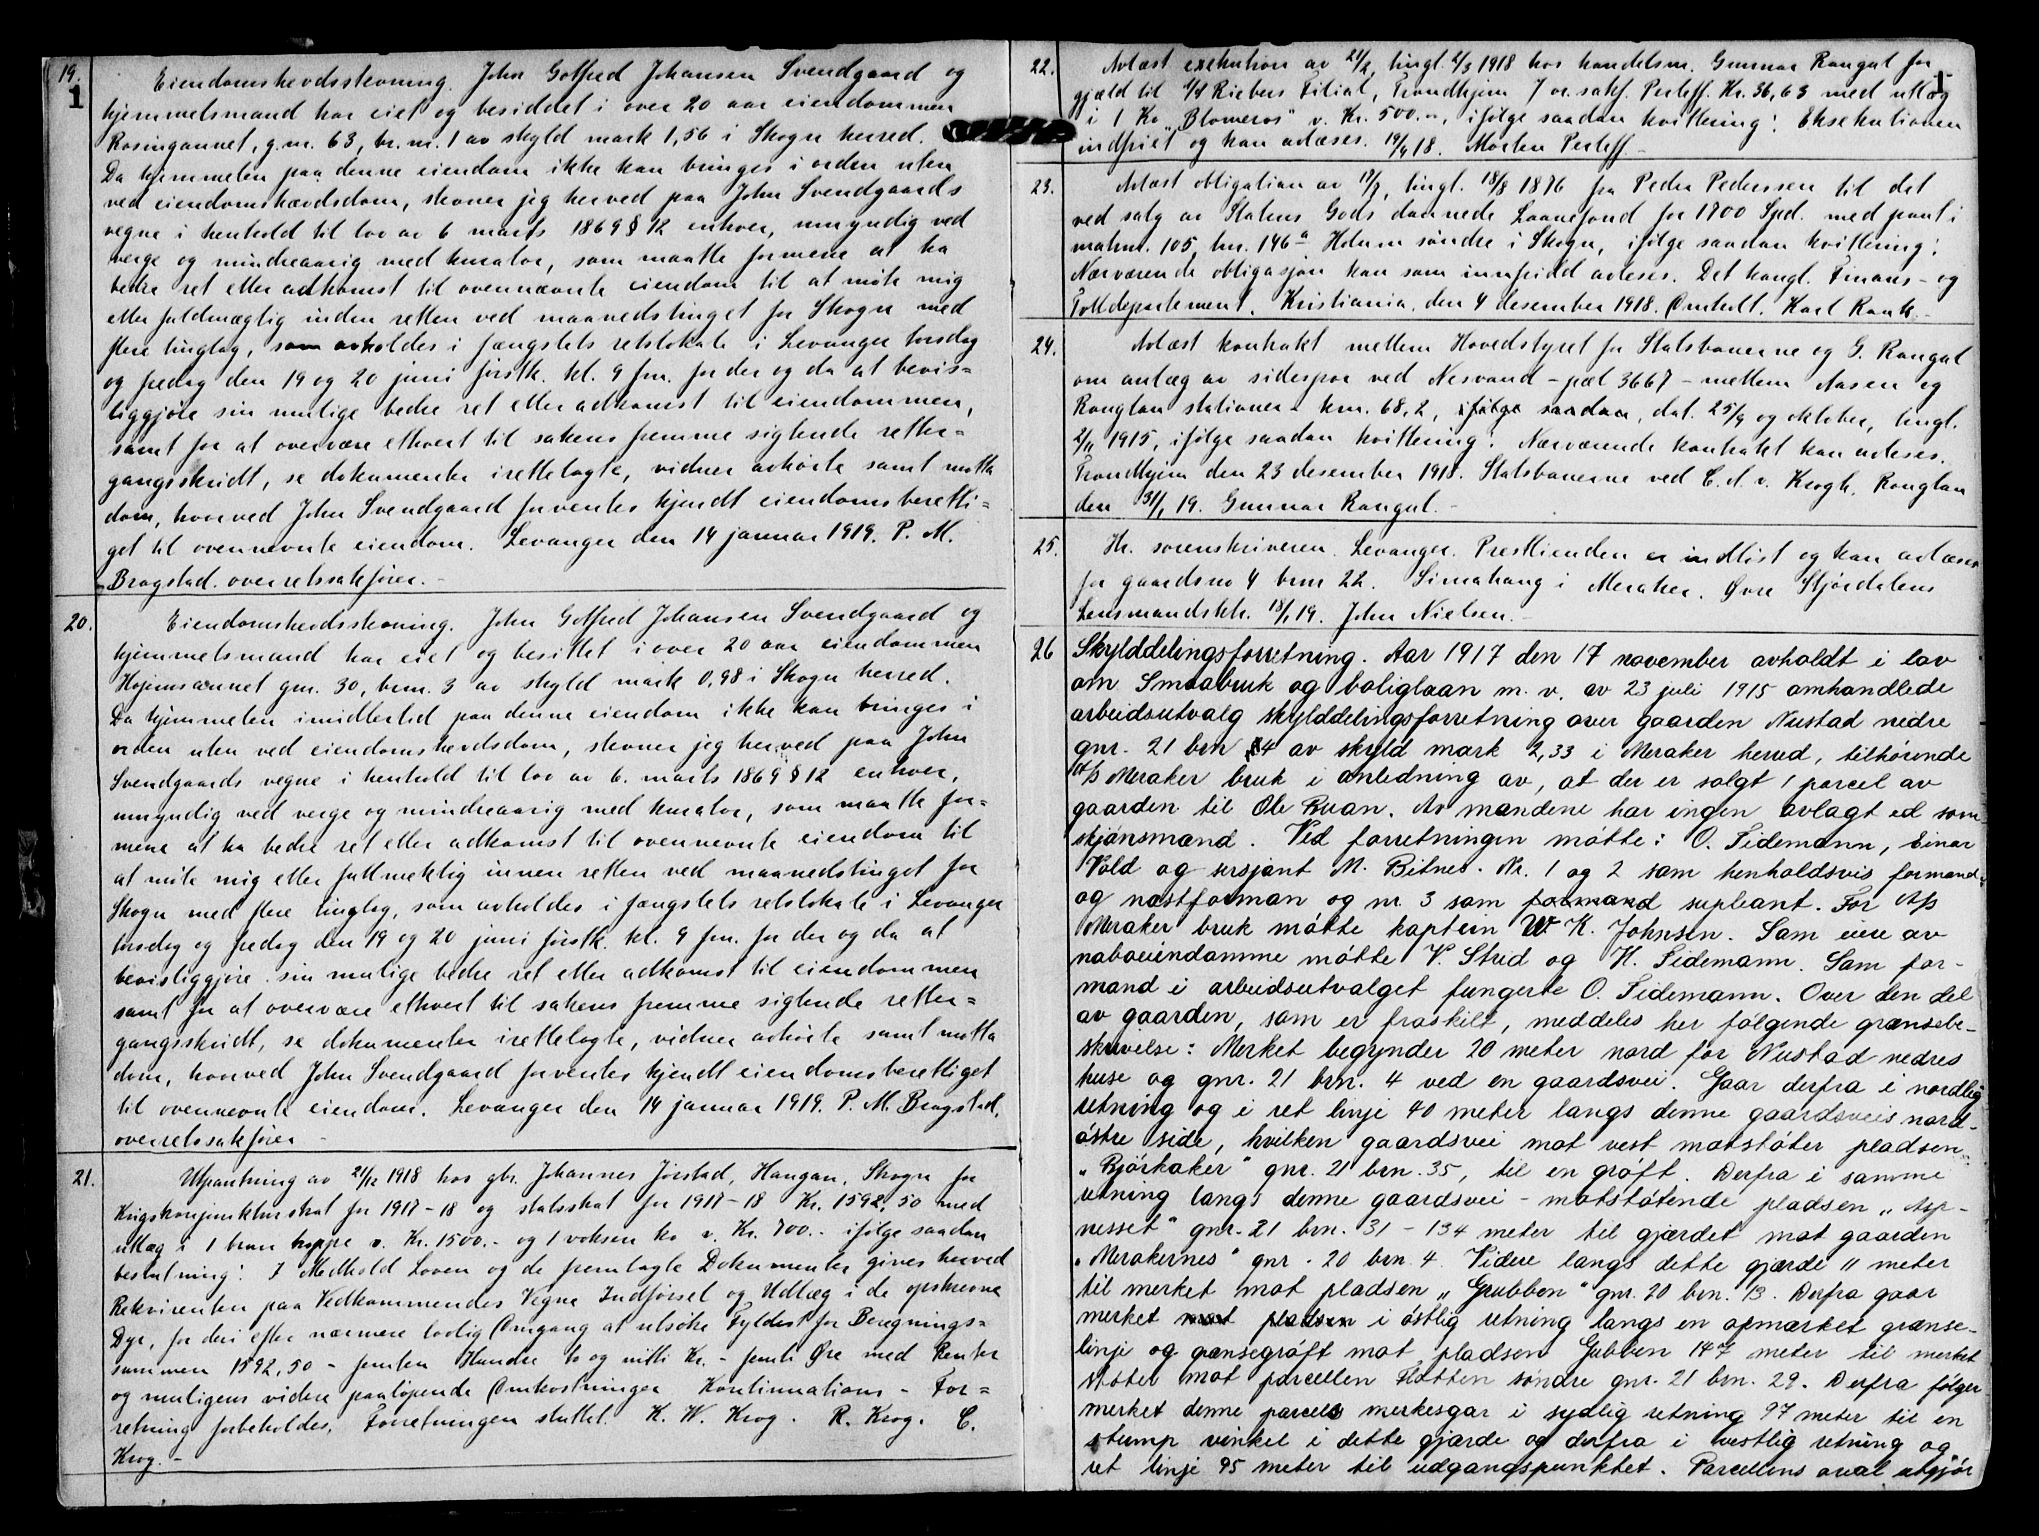 19.
1
Eiendomshevdsstevning. John Gotfred Johansen Svendgaard og
hjemmelsmand har eiet og besiddet i over 20 aar eiendommen
Rosingaunet, g.nr. 63, br. nr. 1 av skyld mark 1,56 i Skogn herred.
Da hjemmelen paa denne eiendom ikke kan bringes i orden uten
ved eiendomshævdsdom, stevner jeg herved paa John Svendgaards
vegne i henhold til lov av 6 marts 1869 § 12 enhver, umyndig ved
verge og mindreaarig med kurator, som maatte formene at ha
bedre ret eller adkomst til ovennævnte eiendom til at møte mig
eller fuldmægtig inden retten ved maanedstinget for Skogn med
flere tinglag, som avholdes i fængslets retslokale i Levanger torsdag
og fredag den 19 og 20 juni førstk. kl. 9 fm. for der og da at bevis=
liggjøre sin mulige bedre ret eller adkomst til eiendommen,
samt for at overvære ethvert til sakens fremme sigtende retter=
gangsskridt, se dokumenter irettelagte, vidner avhørte samt motta
dom, hvorved John Svendgaard forventes kjendt eiendomsberetti=
get til ovennevnte eiendom. Levanger den 14 januar 1919. P. M.
Bragstad. overretssakfører.-
20.
Eiendomshevdsstevning. John Gotfred Johansen Svendgaard og
hjemmelsmand har eiet og besittet i over 20 aar eiendommen
Højemsaunet gnr. 30, brnr. 3 av skyld mark 0,98 i Skogn herred.
Da hjemmelen imidlertid paa denne eiendom ikke kan bringes i
orden uten ved eiendomshevdsdom, stevner jeg herved paa John
Svendgaards vegne i henhold til lov av 6. marts 1869 § 12 enhver,
umyndig ved verge og mindreaarig med kurator, som maatte for=
mene at ha bedre ret eller adkomst til ovennevnte eiendom til
at møte mig eller fullmektig innen retten ved maanedstinget for
Skogn med flere tinglag, som avholdes i fængslets retslokale i Levanger
torsdag og fredag den 19 og 20 juni førstk. kl. 9 fm. for der og da at
bevisliggjøre sin mulige bedre ret eller adkomst til eiendommen
samt for at overvære ethvert til sakens fremme sigtende retter=
gangsskridt, se dokumenter irettelagte, vidner avhørte samt motta
dom, hvorved John Svendgaard forventes kjendt eiendomsberettiget
til ovennevnte eiendom. Levanger den 14 januar 1919. P. M. Bragstad,
overretssakfører -
21.
Utpantning av 21/12 1918 hos gbr. Johannes Jørstad, Haugan, Skogn for
Krigskonjunkturskat for 1917-18 og statsskat for 1917-18 Kr. 1592,50 med
utlæg i 1 brun hoppe v. Kr. 1500.- og 1 voksen ko v. Kr. 700.- ifølge saadan
beslutning: I Medhold Loven og de fremlagte Dokumenter gives herved
Rekvirenten paa Vedkommendes Vegne Indførsel og Udlæg i de opskrevne
Dyr, for deri efter nærmere lovlig Omgang at utsøke Fyldest for Beregnings=
summen 1592,50 - femten Hundre to og nitti Kr. - femti Øre med Renter
og muligens videre paaløpende Omkostninger Kontinuations- For=
retning forbeholdes. Forretningen sluttet. K. W. Krog. R. Krog. C.
Krog.-
22.
1
Avlæst exekution av 22/2, tingl. 4/3 1918 hos handelsm. Gunnar Rongul for
gjæld til A/S Riebers Filial, Trondhjem 7 or. sakf. Perleff. Kr. 36,63 med utlæg
i 1 Ko „Blomeros" v. Kr. 500.-, ifølge saadan kvittering: Eksekutionen
indfriet og kan avlæses. 19/4 18. Morten Perleff.-
23.
Avlæst obligation av 17/7, tingl. 18/8 1876 fra Peder Pederssen til det
ved salg av Statens Gods dannede Laanefond for 1800 Spd. med pant i
matnr. 105, lnr. 146a Holum søndre i Skogn, ifølge saadan kvittering:
Nærværende obligasjon kan som innfridd avleses. Det kongl. Finans- og
Tolldepartement. Kristiania, den 4 desember 1918. Omholt. Karl Rank.-
24.
Avlæst kontrakt mellem Hovedstyret for Statsbanerne og G. Rongul
om anlæg av sidespor ved Nesvand - pæl 3667 - mellem Aasen og
Ronglan stationer - km. 68,2, ifølge saadan, dat. 25/9 og oktober, tingl.
2/11 1915, ifølge saadan kvittering: Nærværende kontrakt kan avleses.
Trondhjem den 23 desember 1918. Statsbanerne ved C. A. v. Krogh. Ronglan
den 31/1 19. Gunnar Rongul.-
25.
Hr. sorenskriveren. Levanger. Prestienden er indløst og kan avlæses
for gaardsno 4 brnr 22. Limohaug i Meraker. Øvre Stjørdalens
Lensmandsktr. 18/1 19. John Nielsen.-
26
Skylddelingsforretning. Aar 1917 den 17 november avholdt i lov
om Smaabruk og boliglaan m. v. av 23 juli 1915 omhandlede
arbeidsutvalg skylddelingsforretning over gaarden Nustad nedre
gnr. 21 brn 4 av skyld mark 2,33 i Meraker herred, tilhørende
A/S Meraker bruk i anledning av, at der er solgt 1 parcel av
gaarden til Ole Ruan. Av mændene har ingen avlagt ed som
skjønsmænd. Ved forretningen møtte: O. Tidemann, Einar
Vold og sersjant M. Bitnes. Nr. 1 og 2 som henholdsvis formand-
og næstforman og nr. 3 som formand supleant. For A/S
Meraker bruk møtte kaptein W K. Johnsen. Som eiere av
naboeiendomme møtte V. Strid og H. Tidemann. Som for-
mand i arbeidsutvalget fungerte O. Tidemann. Over den del
av gaarden, som er fraskilt, meddeles her følgende grænsebe-
skrivelse: Merket begynder 20 meter nord for Nustad nedres
huse og gnr. 21 brn. 4 ved en gaardsvei. Gaar derfra i nordlig
retning og i ret linje 40 meter langs denne gaardsveis nord-
østre side, hvilken gaardsvei mot vest motstøter pladsen
„Bjørkaker" gnr. 21 brn. 35, til en grøft. Derfra i samme
retning langs denne gaardsvei - motstøtende pladsen „Asp-
nesset" gnr. 21 brn. 31 - 134 meter til gjærdet mot gaarden
„Merakernes" gnr. 20 brn. 4. Videre langs dette gjærde 11 meter
til merket mot pladsen „Grubben" gnr. 20 brn. 13. Derfra gaar
merket mot pladsen i østlig retning langs en opmerket grænse-
linje og gænsegrøft mot pladsen Gubben 147 meter til merket
støter mot parcellen Flotten søndre gnr. 21 brn. 29. Derfra følger
merket denne parcels merkesgar i sydlig retning 97 meter til en
stump vinkel i dette gjærde og derfra i vestlig retning og
ret linje 95 meter til udgangspunktet. Parcellens areal utgjør